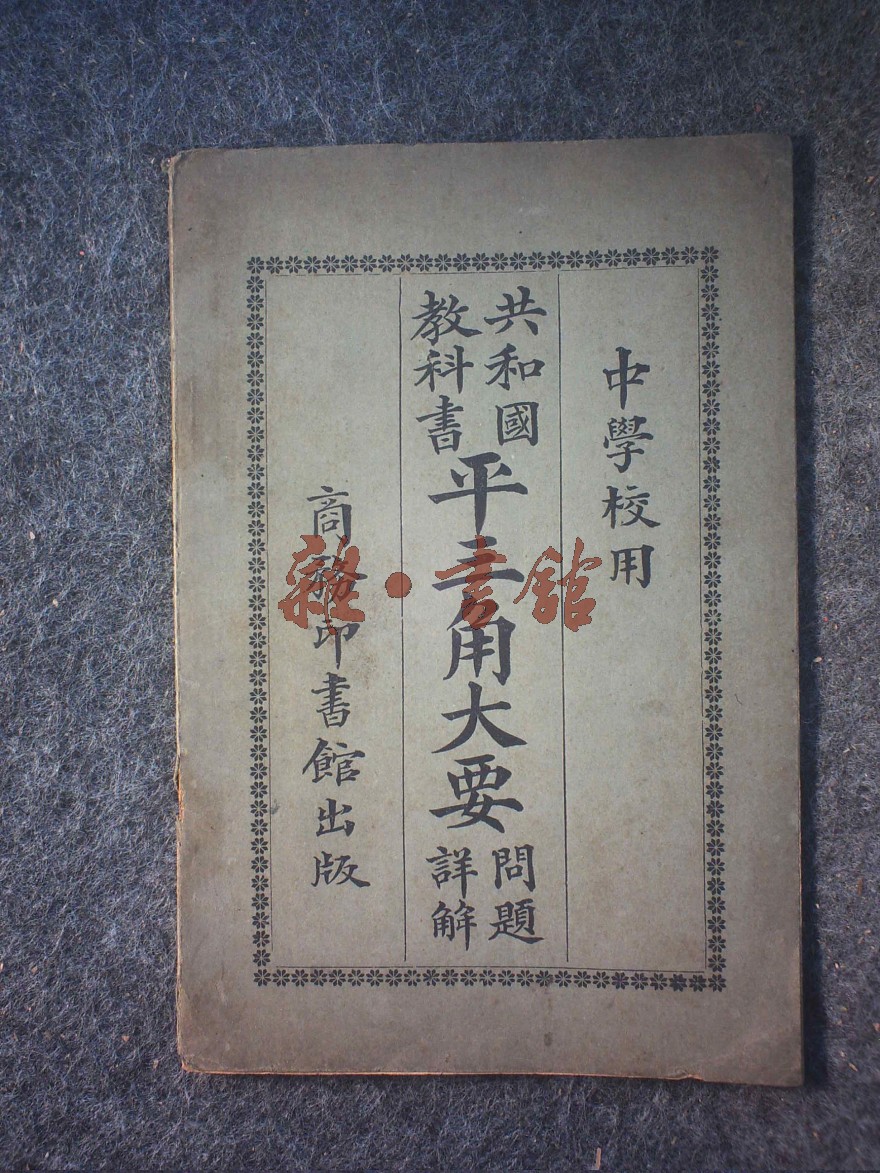 中學校用
共和國
教科書
平三角大要
問題
詳解
商務印書館出版
雜·書館